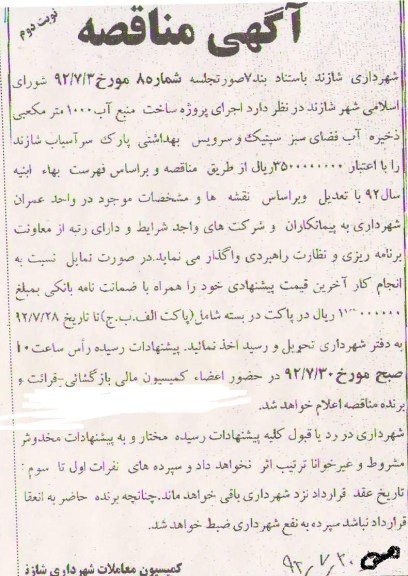 آگهی مناقصه
نوبت دوم
شهرداری شازند باستناد بند۷صورتجلسه شماره۸ مورخ۹۲/۷/۳ شورای
اسلامی شهر شازند در نظر دارد اجرای پروژه ساخت منبع آب۱۰۰۰متر مکعبی
ذخیره آب فضای سبز سپتیک و سرویس بهداشتی پارک سرآسیاب شازند
را با اعتبار ۳۵۰۰۰۰۰۰۰۰ریال از طریق مناقصه و براساس فهرست بهاء ابنیه
سال۹۲ با تعدیل وبراساس نقشه ها و مشخصات موجود در واحد عمران
شهرداری به پیمانکاران و شرکت های واجد شرایط و دارای رتبه از معاونت
برنامه ریزی و نظارت راهبردی واگذار می نماید.در صورت تمایل نسبت به
انجام کار آخرین قیمت پیشنهادی خود را همراه با ضمانت نامه بانکی بمبلغ
ریال در پاکت در بسته شامل(پاکت الف.ب.ج)تا تاریخ ۹۲/۷/۲۸
به دفتر شهرداری تحویل و رسید اخذ نمائید. پیشنهادات رسیده رأس ساعت۱۰
صبح مورخ۹۲/۷/۳۰ در حضور اعضاء کمیسیون مالی بازگشائی-قرائت و
برنده مناقصه اعلام خواهد شد.
شهرداری در رد یا قبول کلیه پیشنهادات رسیده مختار و به پیشنهادات مخدوش
مشروط و غیرخوانا ترتیب اثر نخواهد داد و سپرده های نفرات اول تا سوم تا
تاریخ عقد قرارداد نزد شهرداری باقی خواهد ماند.چنانچه برنده حاضر به انعقا
قرارداد نباشد سپرده به نفع شهرداری ضبط خواهد شد.
۹۲/۷/۲۰
کمیسیون معاملات شهرداری شازند